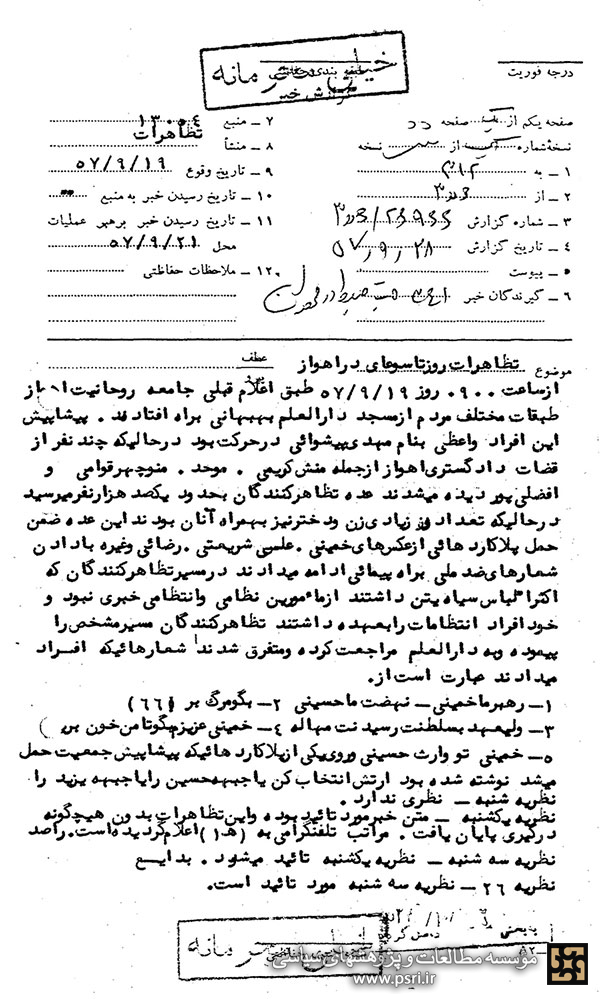 خیلی محرمانه
درجه فوریت
طبقه بندی حفاظتی
گزارش خبر
صفحه یکم از یک صفحه
نسخه شماره از نسخه
۱ ـ به ۳۱۲
۲ ـ از
۳ ـ شماره گزارش
۴ ـ تاریخ گزارش ۵۷/۹/۲۸
۵ ـ پیوست
۶ ـ گیرندگان خبر
۷ ـ منبع ۱۳۰۰۴
۸ ـ منشأ تظاهرات
۹ ـ تاریخ وقوع ۵۷/۹/۱۹
۱۰ ـ تاریخ رسیدن خبر به منبع
۱۱ ـ تاریخ رسیدن خبر برهبر عملیات
محل ۵۷/۹/۲۱
۱۲ ـ ملاحظات حفاظتی
موضوع تظاهرات روز تاسوعای در اهواز
عطف
از ساعت ۰۹۰۰ روز ۵۷/۹/۱۹ طبق اعلام قبلی جامعه روحانیت اهواز
طبقات مختلف مردم از مسجد دارالعلم بهبهانی براه افتادند . پیشاپیش
این افراد واعظی بنام مهدی پیشوائی درحرکت بود درحالیکه چند نفر از
قضات دادگستری اهواز ازجمله منش کریمی . موحد . منوچهر قوامی و
افضلی پور دیده میشدند عده تظاهرکنندگان بحدود یکصد هزارنفر میرسید
درحالیکه تعداد زیادی زن ودختر نیز بهمراه آنان بودند این عده ضمن
حمل پلاکاردهائی از عکس های خمینی . علسی شریعتی . رضائی وغیره بادادن
شعارهای ضد ملی براه پیمائی ادامه میدادند درمسیر تظاهرکنندگان که
اکثرا لباس سیاه بتن داشتند ازمامورین نظامی وانتظامی خبری نبود و
خود افراد انتظامات رابعهده داشتند تظاهرکنندگان مسیر مشخص را
پیموده وبه دارالعلم مراجعت کرده ومتفرق شدند شعارهائیکه افراد
میدادند عبارت است از.
۱ـ رهبرما خمینی ـ نهضت ما حسینی ۲ـ بگو مرگ بر (۶۶)
۳ـ ولیعهد بسلطنت رسیدنت مهاله ۴ـ خمینی عزیزم بگو تا من خون بر
۵ـ خمینی تو وارث حسینی و روی یکی ازپلاکاردهائیکه پیشاپیش جمعیت حمل
میشد نوشته شده بود ارتش انتخاب کن یاجبهه حسین را یاجبهه یزید را
نظریه شنبه ـ نظری ندارد .
نظریه یکشنبه ـ متن خبر مورد تائید بوده و این تظاهرات بدون هیچگونه
درگیری پایان یافت . مراتب تلفنگرامی به (هد۱) اعلام گردیده است. راصد
نظریه سه شنبه ـ نظریه یکشنبه تائید میشود . بدایع
نظریه ۲۶ ـ نظریه سه شنبه مورد تائید است.
خیلی محرمانه
موسسه مطالعات و پژوهشهای سیاسی
www.psri.ir